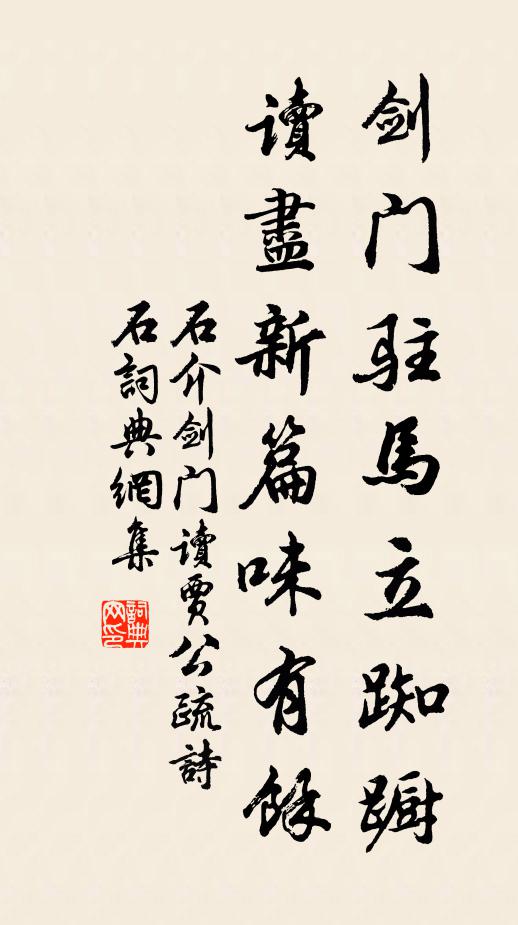 剑门驻馬立踟蹰
讀盡新篇味有餘
石介剑门讀賈公疏詩
石詞典網集
詞典网印